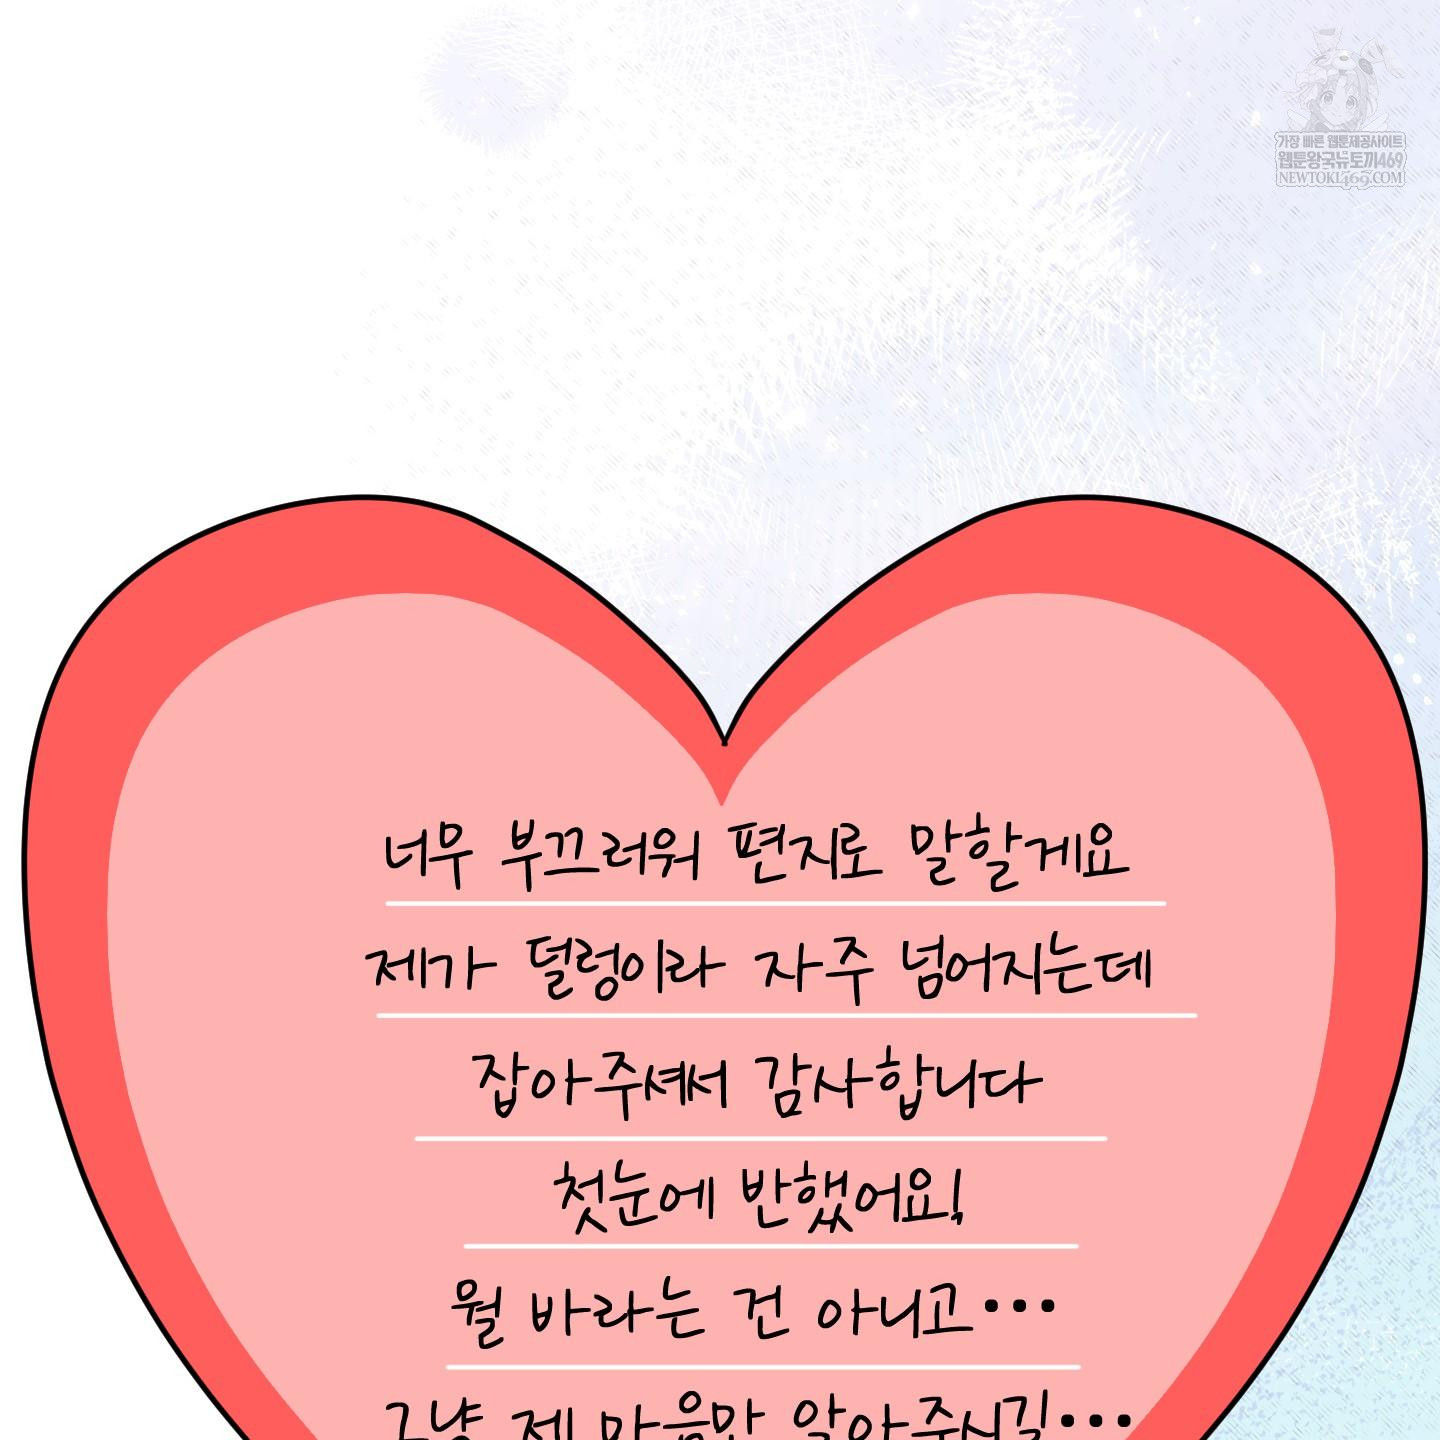 가장 빠른 웹툰제공사이트
웹툰왕국뉴토끼469
NEWTOKI469.COM
너무 부끄러워 편지로 말할게요
제가 덜렁이라 자주 넘어지는데
잡아주셔서 감사합니다
첫눈에 반했어요!
뭘 바라는 건 아니고···
그냥 제 마음만 알아주시길···